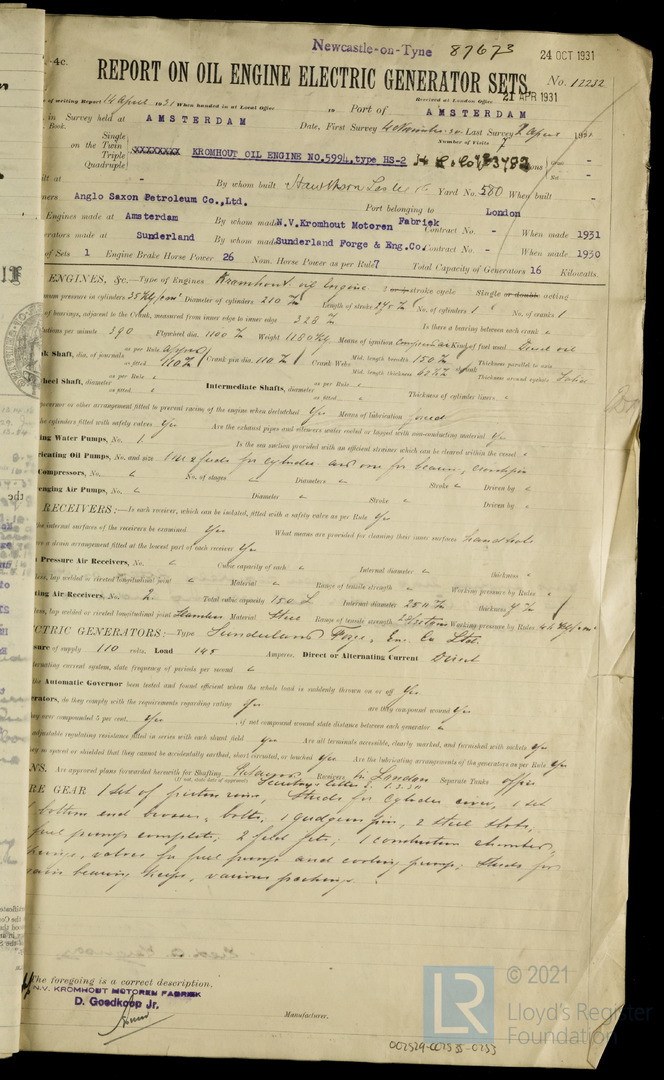 Newcastle-on-Tyne 87673
24 OCT 1931
-4c.
REPORT ON OIL ENGINE ELECTRIC GENERATOR SETS.
No. 12232
21 APR 1931
of writing Report 14 April 1931 When handed in at Local Office 19 Port of AMSTERDAM
Received at London Office
in Survey held at AMSTERDAM Date, First Survey Last Survey April 1931
Book. Number of Visits 7
Single
on the Twin
Triple
Quadruple
XXXXXXXXX KROMHOUT OIL ENGINE NO.5994, type HS-2
Gross -
Net -
ilt at - By whom built Hawthorn Leslie & Co Yard No. 580 When built -
ners Anglo Saxon Petroleum Co.,Ltd. Port belonging to London
Engines made at Amsterdam By whom made N.V.Kromhout Motoren Fabriek Contract No. - When made 1931
erators made at Sunderland By whom made Sunderland Forge & Eng.Co. Contract No. - When made 1930
of Sets 1 Engine Brake Horse Power 26 Nom. Horse Power as per Rule 7 Total Capacity of Generators 16 Kilowatts.
ENGINES, &c.—Type of Engines Kromhout oil Engine 2 or 4 stroke cycle Single or double acting
mum pressure in cylinders 35 Kg/cm² Diameter of cylinders 210 Length of stroke No. of cylinders 1 No. of cranks 1
of bearings, adjacent to the Crank, measured from inner edge to inner edge 328 Is there a bearing between each crank
utions per minute 390 Flywheel dia. 1100 Weight 1180 Kg Means of ignition compression Kind of fuel used Diesel oil
nk Shaft, dia. of journals as per Rule appr as fitted 110 Crank pin dia. 110 Crank Webs Mid. length breadth 150 Thickness parallel to axis
Mid. length thickness shrunk Thickness around eyehole Solid
heel Shaft, diameter as per Rule as fitted Intermediate Shafts, diameter as per Rule as fitted Thickness of cylinder liners
overnor or other arrangement fitted to prevent racing of the engine when declutched Yes Means of lubrication forced
he cylinders fitted with safety valves Yes Are the exhaust pipes and silencers water cooled or lagged with non-conducting material Yes
ing Water Pumps, No. 1 Is the sea suction provided with an efficient strainer which can be cleared within the vessel
ricating Oil Pumps, No. and size
Compressors, No. No. of stages Diameters Stroke Driven by
enging Air Pumps, No. Diameter Stroke Driven by
RECEIVERS:—Is each receiver, which can be isolated, fitted with a safety valve as per Rule Yes
he internal surfaces of the receivers be examined Yes What means are provided for cleaning their inner surfaces handhole
ere a drain arrangement fitted at the lowest part of each receiver Yes
h Pressure Air Receivers, No. Cubic capacity of each Internal diameter thickness
less, lap welded or riveted longitudinal joint Material Range of tensile strength Working pressure by Rules
ting Air Receivers, No. 2 Total cubic capacity 150 L Internal diameter thickness
less, lap welded or riveted longitudinal joint Seamless Material Steel Range of tensile strength Working pressure by Rules
CTRIC GENERATORS:—Type Sunderland Forge, Eng. Co Ltd.
sure of supply 110 volts. Load 145 Amperes. Direct or Alternating Current Direct
lternating current system, state frequency of periods per second
the Automatic Governor been tested and found efficient when the whole load is suddenly thrown on or off Yes
erators, do they comply with the requirements regarding rating Yes are they compound wound Yes
they over compounded 5 per cent. Yes , if not compound wound state distance between each generator
adjustable regulating resistance fitted in series with each shunt field Yes Are all terminals accessible, clearly marked, and furnished with sockets Yes
hey so spaced or shielded that they cannot be accidentally earthed, short circuited, or touched Yes Are the lubricating arrangements of the generators as per Rule Yes
NS. Are approved plans forwarded herewith for Shafting Receivers in London Separate Tanks office
(If not, state date of approval) Secretary's letter 1.2.31
RE GEAR 1 set of piston rings, studs for cylinder cover, 1 set
bottom end brasses, bolts; 1 gudgeon pin, 2 steel
fuel pump complete; 2 fuel jets; 1 combustion chamber
valves for fuel pump and cooling pump; studs for
main bearing keeps, various packings.
The foregoing is a correct description,
N.V. KROMHOUT MOTOREN FABRIEK
D. Goedkoop Jr.
Manufacturer.
002529-002535-0253
LR
© 2021
Lloyd's Register
Foundation